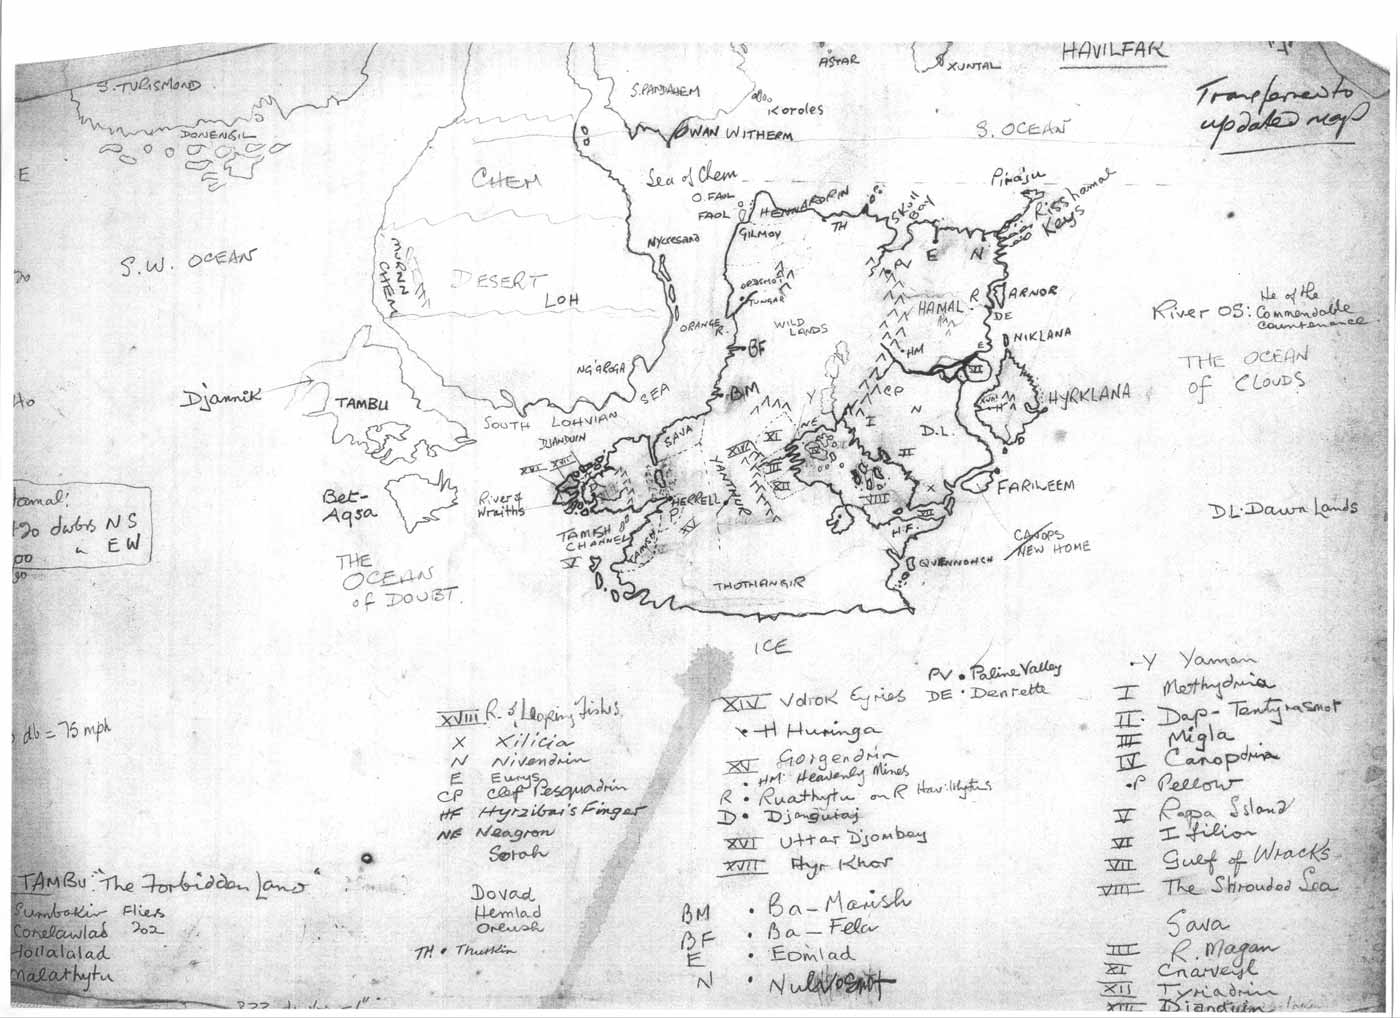 HAVILFAR
ASTAR
XUNTAL
S. TURISMOND
S. PANDAHEM
Koroles
Transferred to
updated map
DONENGIL
WAN WITHERM
S. OCEAN
E
CHEM
Sea of Chem
O. FAOL
FAOL
HENNARDRIN
TH
SKULL
BAY
Piraju
Risshamal
Keys
GILMOY
NYCRESAND
S.W. OCEAN
MURNN
CHEM
DESERT
LOH
ORDSMOT
TUNGAR
PV
E
N
HAMAL
R
ARNOR
DE
ORANGE
R.
WILD
LANDS
River OS: He of the
Commendable
countenance
NIKLANA
BF
HM
E
VI
THE OCEAN
of CLOUDS
NG'AROGA
SEA
Djannik
TAMBU
BM
Y
CP
N
HYRKLANA
H
SOUTH LOHVIAN
DJANDUIN
SAVA
XI
NE
I
D.L.
XVI
XVII
XIV
III
XII
II
YANTHUR
VIII
X
FARILEEM
Bet-
Aqsa
River of
Wraiths
HERRELL
P
XV
VII
H.F.
DL. Dawn Lands
hamal:
20 dwbrs NS
00 " EW
TAMISH
CHANNEL
V
YAMISH
CANOPS
NEW HOME
QUENNOHCH
THE
OCEAN
of DOUBT.
THOTHANGIR
ICE
db = 75 mph
XVIII R. of Leaping Fishes
X Xilicia
N Nivendrin
E Eurys
CP Clef Pesquadrin
HF Hyrzibar's Finger
NE Neagron
Sorah
Dovad
Hemlad
Oreush
TH • Thurkin
XIV Volrok Eyries
H Huringa
XV Gorgendrin
• HM: Heavenly Mines
R • Ruathytu on R Havilthytus
D • Djanguraj
XVI Uttar Djombey
XVII Hyr Khor
BM • Ba-Marish
BF • Ba-Fela
E • Eomlad
N •
PV • Paline Valley
DE • Denrette
•Y Yaman
I Methydria
II. Dap-Tentyrasmot
III Migla
IV Canopdria
•P Pellow
V Rapa Island
VI Ifilion
VII Gulf of Wracks
VIII The Shrouded Sea
Sava
III R. Magan
XI Cnarveyl
XII Tyriadrin
XIII Djanduin
TAMBU: "The Forbidden Land"
Sumbakir Fliers
Conelawlad 202
Hollalalad
Malathytu